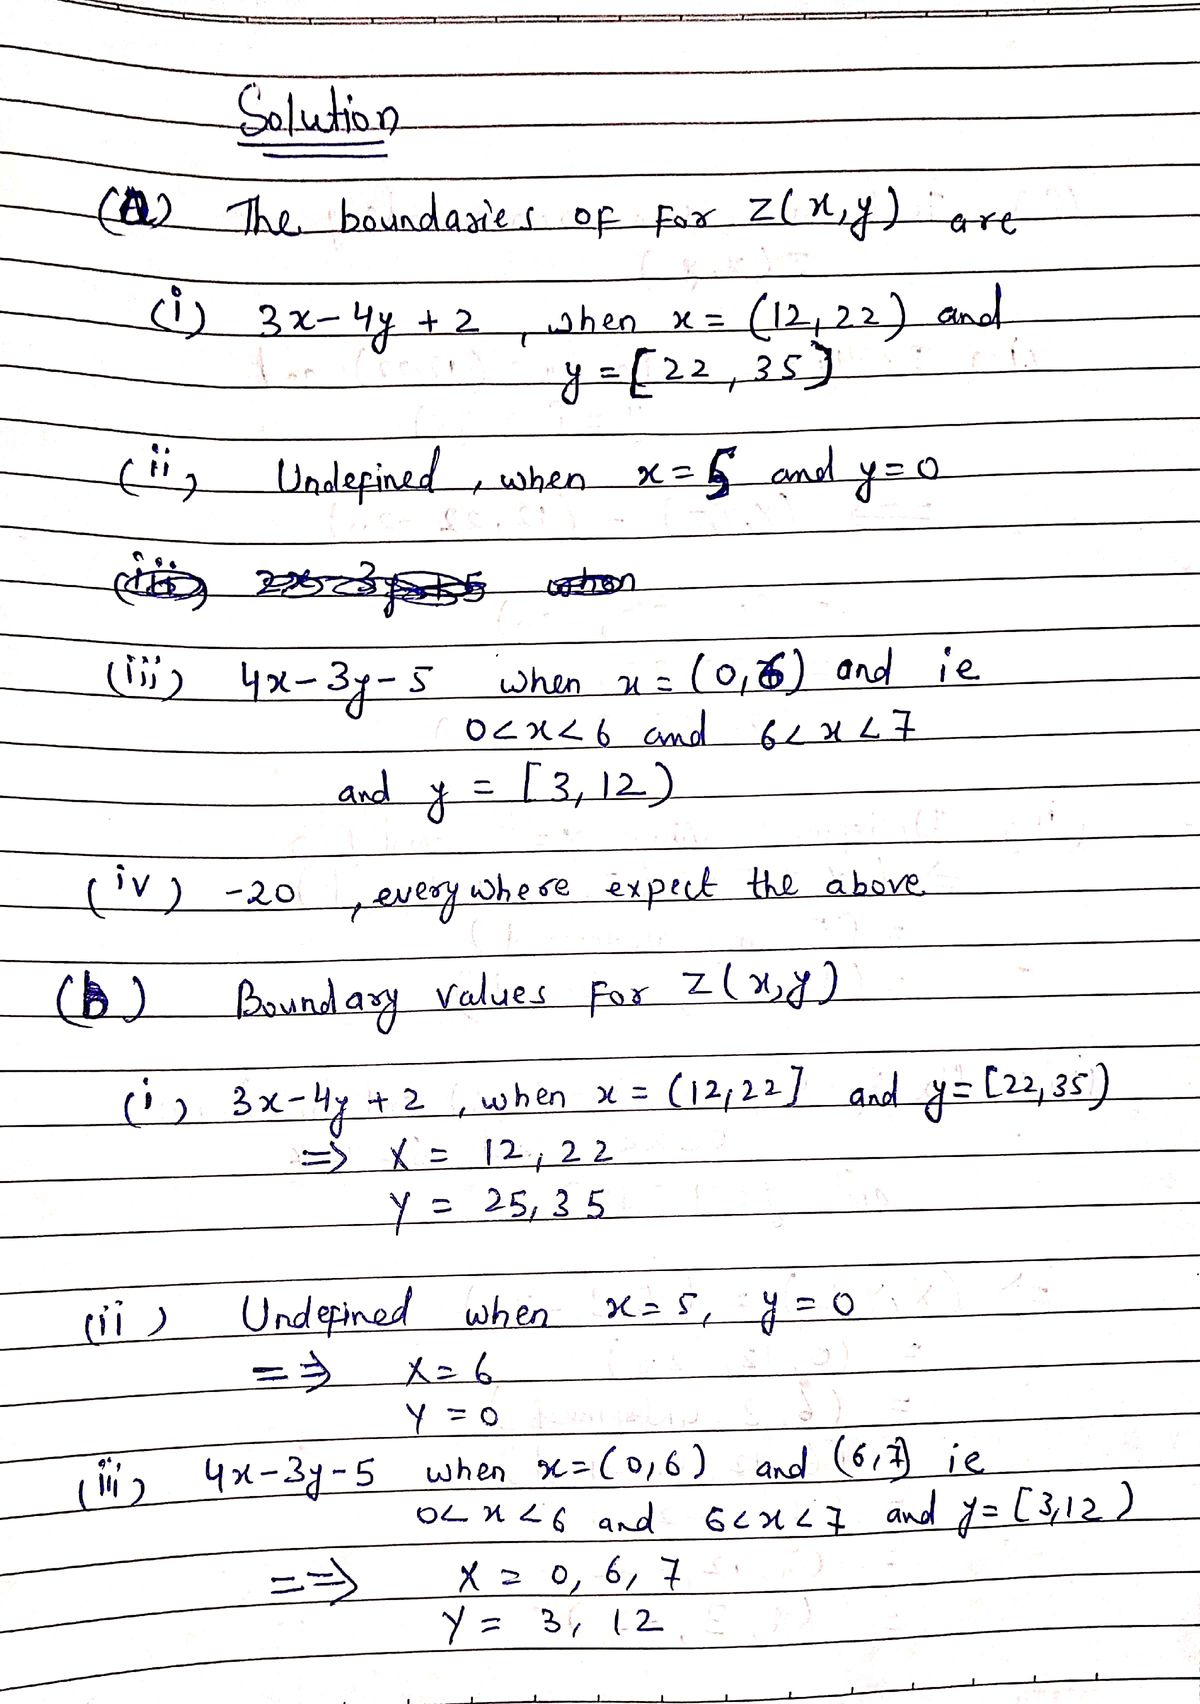 Solution
(A) The boundaries of For Z(x,y) are
(i) 3x-4y+2, when x = (12,22) and
y = [22,35]
(ii) Undefined, when x=5 and y=0
(iii) 4x-3y-5 when x = (0,6) and ie
0<x<6 and 6<x<7
and y = [3,12)
(iv) -20, everywhere expect the above
(b) Boundary values For Z(x,y)
(i) 3x-4y+2, when x = (12,22] and y=[22,35)
=> X = 12, 22
Y = 25, 35
(ii) Undefined when x=5, y=0
==> X=6
Y=0
(iii) 4x-3y-5 when x=(0,6) and (6,7] ie
0<x<6 and 6<x<7 and y=[3,12)
==> X = 0, 6, 7
Y = 3, 12